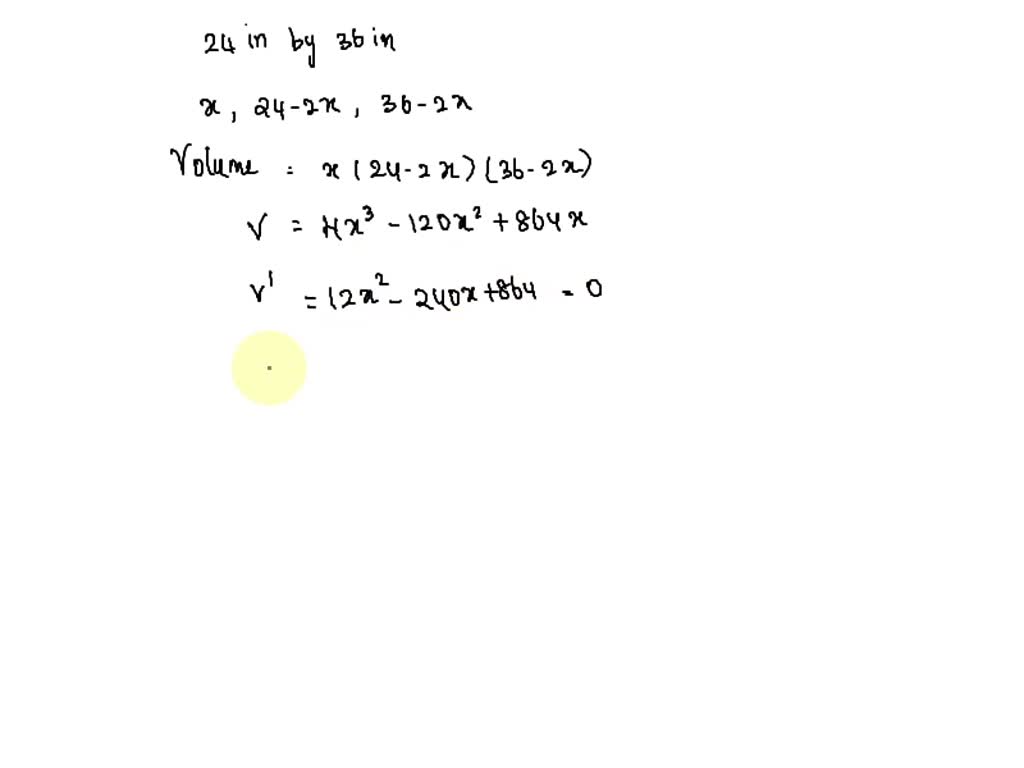 24 in by 36 in
x, 24-2x, 36-2x
Volume = x(24-2x)(36-2x)
V = 4x³ - 120x² + 864x
V' = 12x² - 240x + 864 = 0